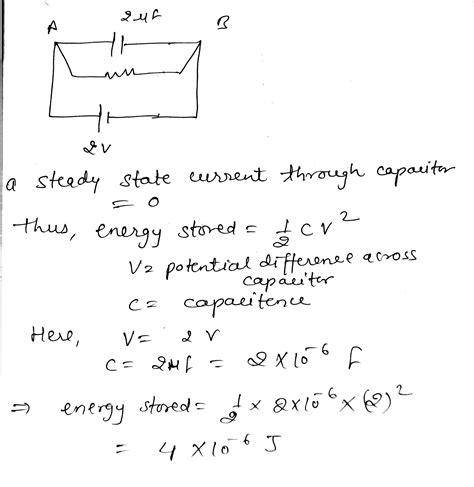 2μF
A B
2V
a steady state current through capacitor
= 0
thus, energy stored = 1/2 CV²
V= potential difference across
capacitor
C= capacitence
Here, V= 2V
C= 2μf = 2×10⁻⁶ f
⇒ energy stored= 1/2 × 2×10⁻⁶ × (2)²
= 4 ×10⁻⁶ J